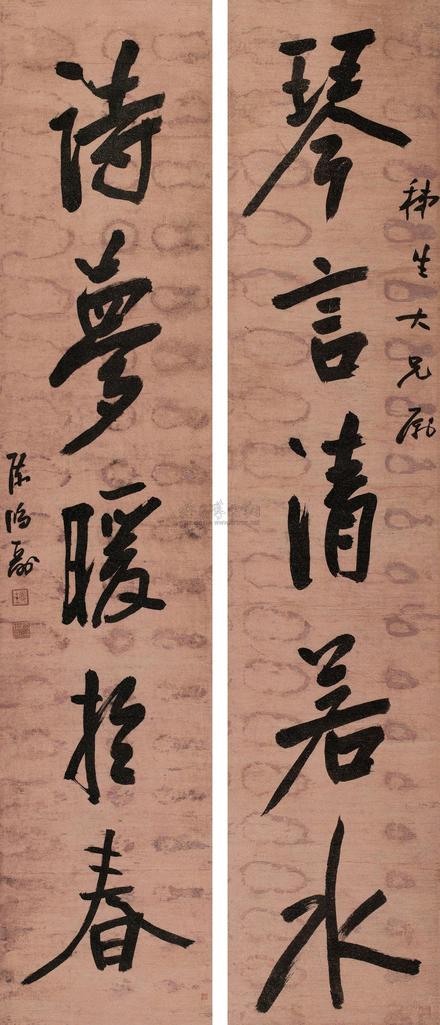 琴言清若水
生大兄屬
詩夢暖於春
陳鴻壽